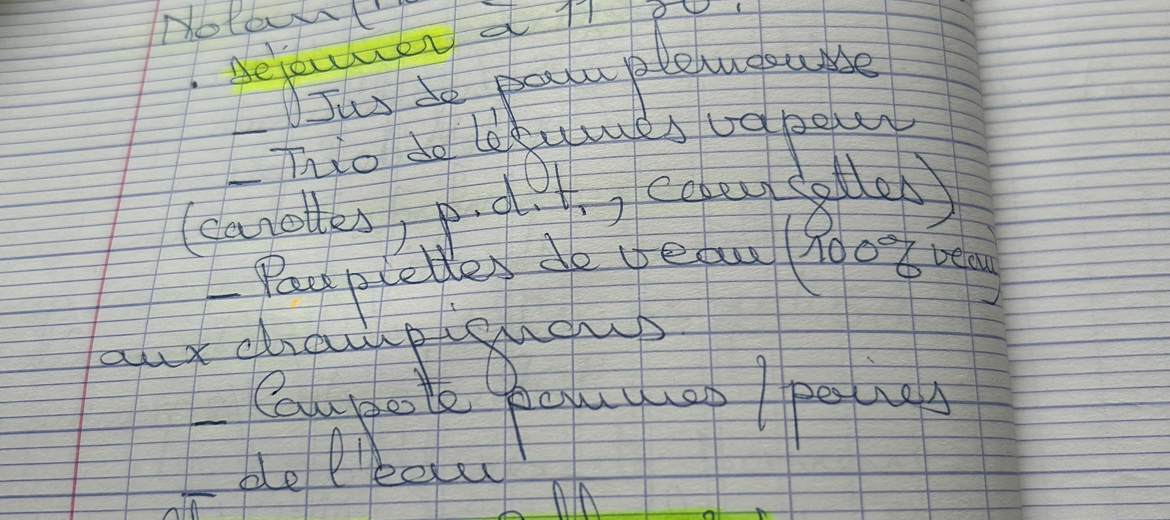 Nolan
. Déjeuner à 11h30.
_ Jus de pamplemousse
_ Trio de légumes vapeur
(carottes, p.d.t., courgettes)
_ Paupiettes de veau (100% veau)
aux champignons.
_ Compote pommes / poires
_ de l'eau